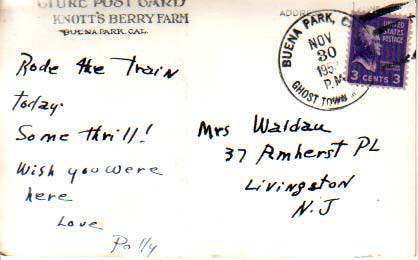 PICTURE POST CARD
KNOTT'S BERRY FARM
BUENA PARK, CAL.
Rode the Train
today.
Some thrill!
Wish you were
here
Love
Polly
ADDRESS
BUENA PARK, C
NOV
30
195
P.M.
GHOST TOWN
UNITED
STATES
POSTAGE
3 CENTS 3
Mrs Waldau
37 Amherst PL
Livingston
N.J